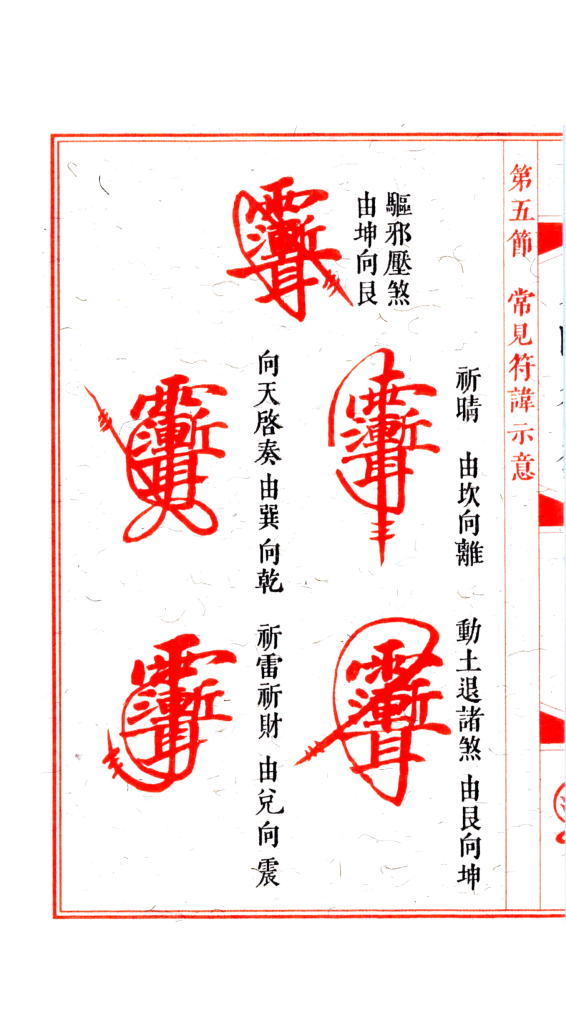 第五節 常見符諱示意
驅邪壓煞
由坤向艮
祈晴 由坎向離
向天啓奏 由巽向乾
動土退諸煞 由艮向坤
祈雷祈財 由兌向震